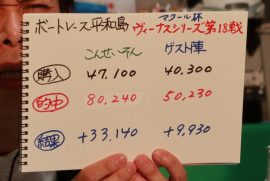 マクール杯
ボートレース平和島 ヴィーナスシリーズ第18戦
こんせいそん ゲスト陣
購入 47,100 40,300
的中 80,240 50,230
結果 +33,140 +9,930